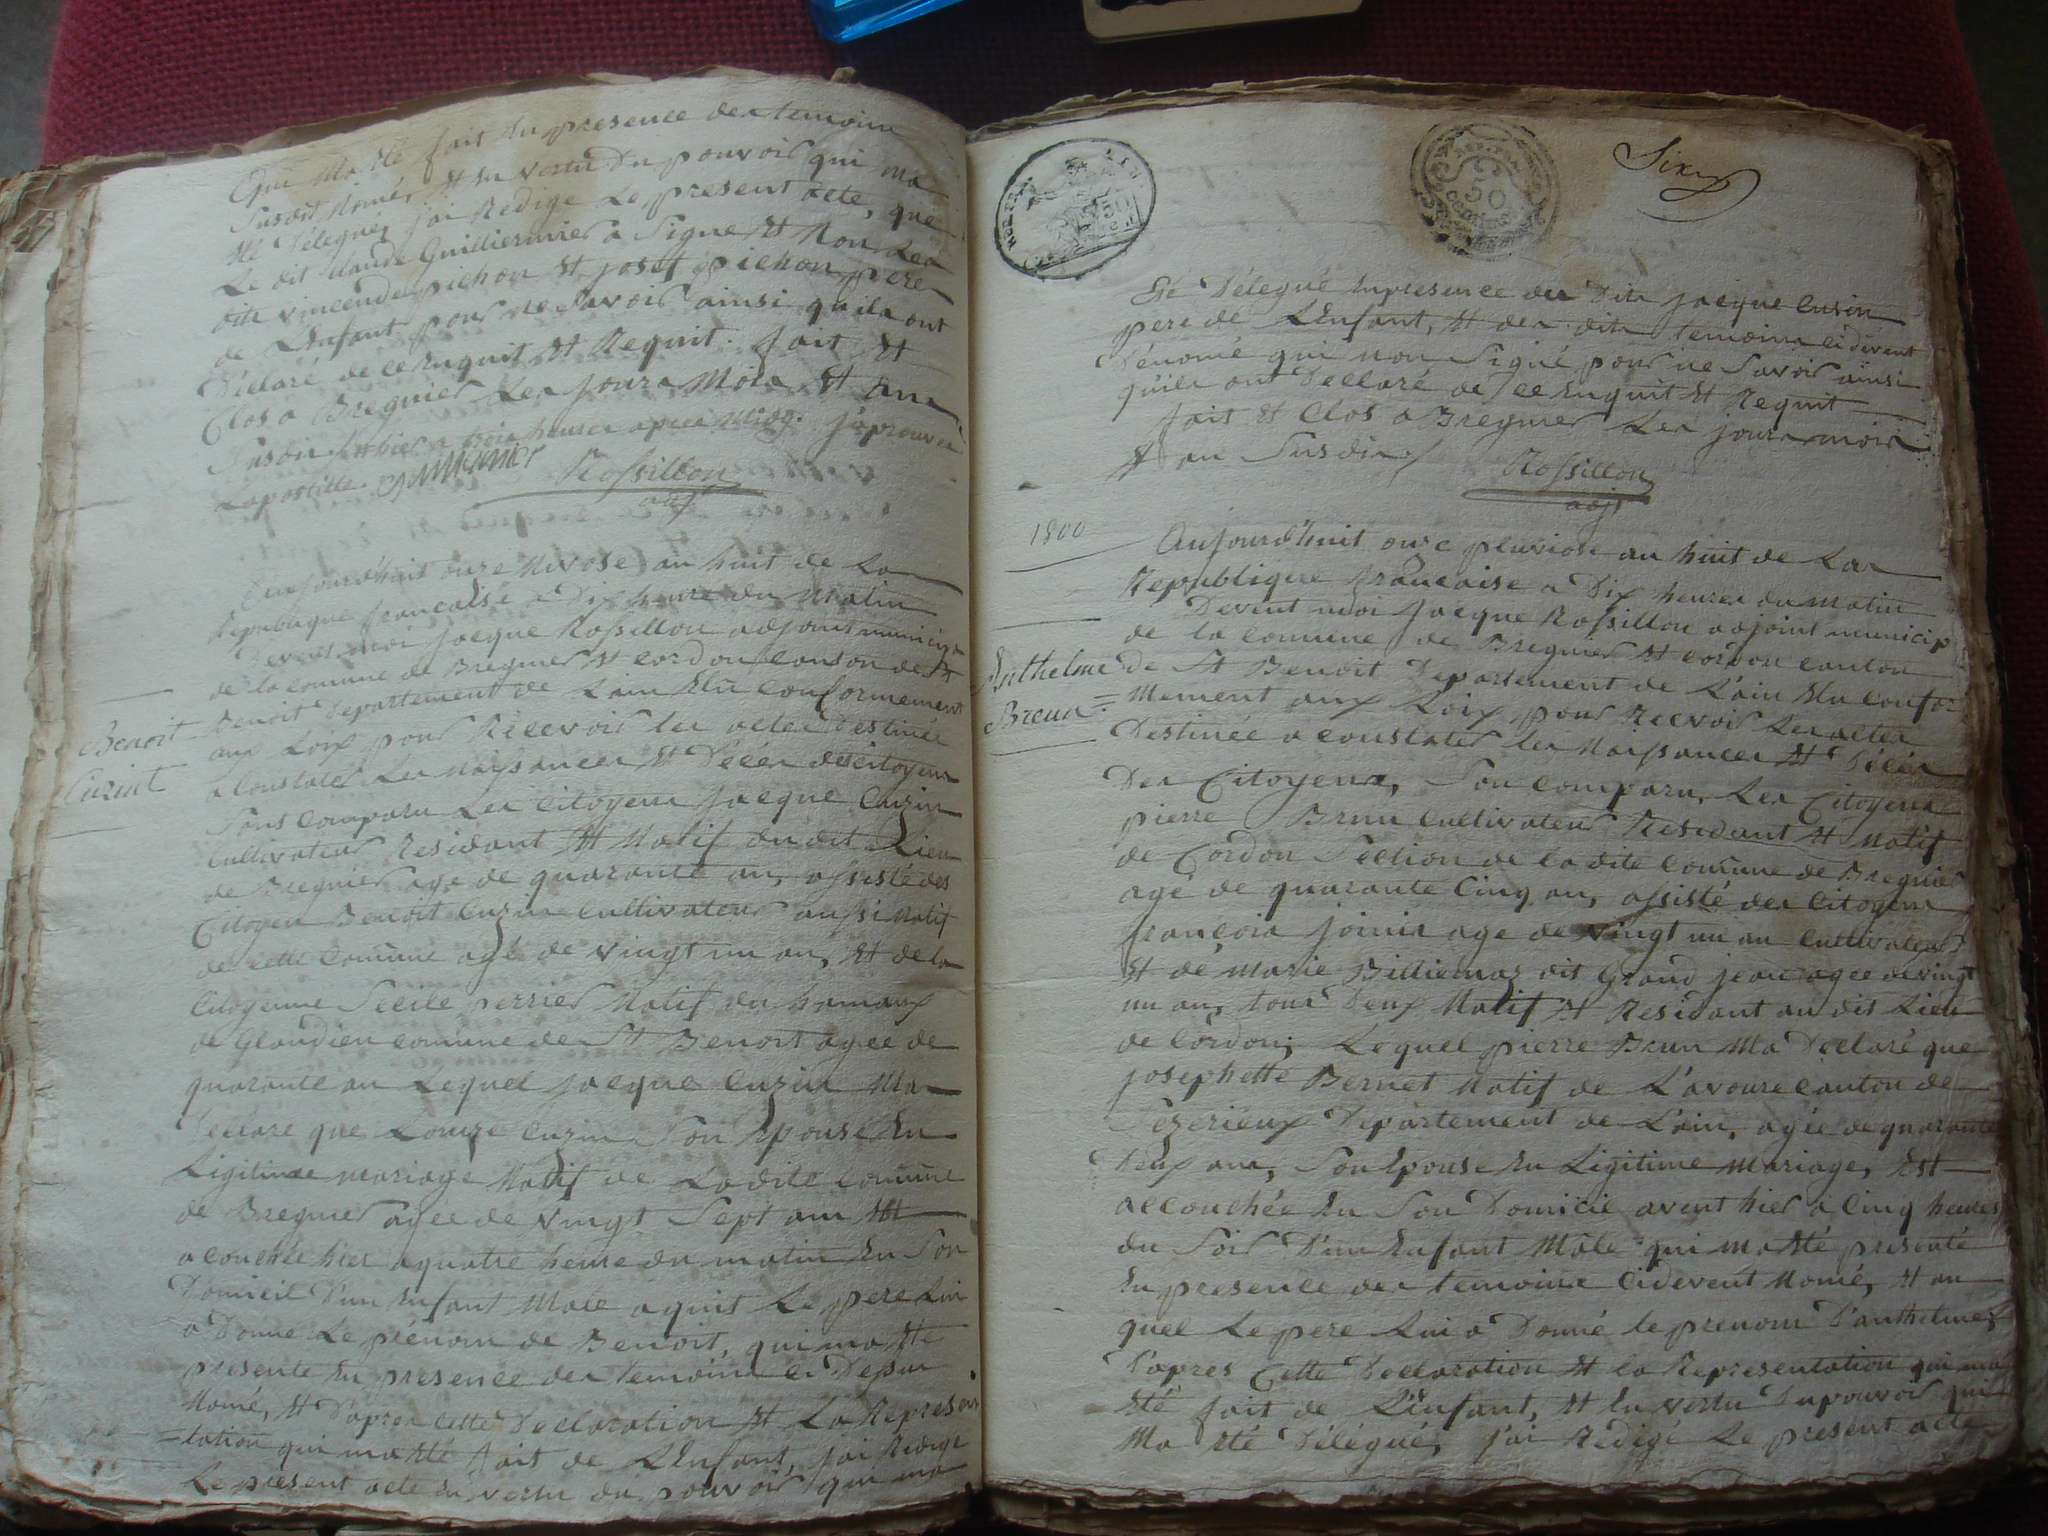 Qui Ma Eté fait En presence des temoins
Susdit Nomé, Et En vertu Du pouvoir qui ma
Eté Délegué, j'ai Redige Le present acte, que
Le dit Claude Guilliermier a Signe Et Non Les
dite vincende pichon Et josef pichon, pere
de L'Enfant pour ne Savoir ainsi quils ont
Déclaré de ce Enquit Et Requit. fait Et
Clos a Bregnier Les jours Mois Et ans
Susdit hier a trois heures apres midy. j'aprouve
Lapostille.
Rossillon
adj
Aujourd'huit onze Nivose an huit de La
Republique francaise a Dix heure du Matin
Devent moi jacque Rossillon adjoint municip
de la comune de Bregnier Et Cordon Canton de St
Benoit Departement de Lain Elu conformement
aux Loix pour Recevoir les actes Destinée
a Constater Les Naissances Et Décés des citoyens
Sont comparu Les Citoyens jacque Cuzin
Cultivateur Residant Et Natif du dit Lieu
de Bregnier age de quarante an, assisté des
Citoyen Benoit Cuzin Cultivateur aussi Natif
de cette Comune agé de vingt un an, Et de la
Citoyenne Secile perrier Natif du hamaux
de Glandieu comune de St Benoit agee de
quarante an Lequel jacque Cuzin Ma
Déclaré que Louise Cuzin Son Epouse En
Ligitime mariage Natif de Ladite Comune
de Bregnier agee de vingt Sept ans Et
acouchée hier a quatre heure du matin En Son
Domicil D'un Enfant Male aquit Le pere Lui
a Donné Le prénom de Benoit, qui ma Eté
présenté En presence des temoins ci Desu
Nomé, Et D'apres Cette Declaration Et La Represen
=tation qui ma Eté fait de L'Enfant, jai Redige
Le présent acte En vertu du pouvoir qui ma
Benoit
Cuzint
Sixf
Eté Délegué En presence des Dits jacque Cusin
pere de L'Enfant, Et des dits temoins ci devent
Dénomé qui non Signé pour ne Savoir ainsi
quils ont Declaré de ce Enquit Et Requit
fait Et Clos a Bregnier Les jours mois
Et an Susdis
Rossillon
adj
1800
Aujourd'huit onze pluviose an huit de La
Republique francaise a Dix heures du Matin
Devent moi jacque Rossillon adjoint municip
de la Comune de Bregnier Et Cordon canton
de St Benoit Departement de Lain Elu Confor
Mement aux Loix pour Recevoir Les actes
Destinée a constater les Naissances Et Décès
Des Citoyens, Son comparu, Les Citoyens
pierre Brun Cultivateur Residant Et Natif
de Cordon Section de la dite Comune de Bregnier
agé de quarante Cinq an, assisté des Citoyens
françois joinis age de vingt un an Cultivateur
Et de Marie Billiemaz dit Grand jean agee de vingt
un an, tous Deux Natif Et Residant au dit Lieu
de Cordon, Lequel pierre Brun Ma Declaré que
josephette Bernet Natif de L'avoure canton de
Sezerieux Departement de Lain, agée de quarante
Deux ans, Son Epouse En Ligitime Mariage, Est
accouchée En Son Domicil avent hier a Cinq heures
du Soir D'un Enfant Mâle qui ma Eté présenté
En presence des temoins Cidevent Nomé, Et au
quel Le pere Lui a Donné le prenom D'anthelme
D'apres Cette Declaration Et la Representation qui ma
Eté fait de L'Enfant, Et En vertu Dupouvoir qui
Ma Eté Délégué, j'ai Rédigé Le present acte
Anthelme
Breun=